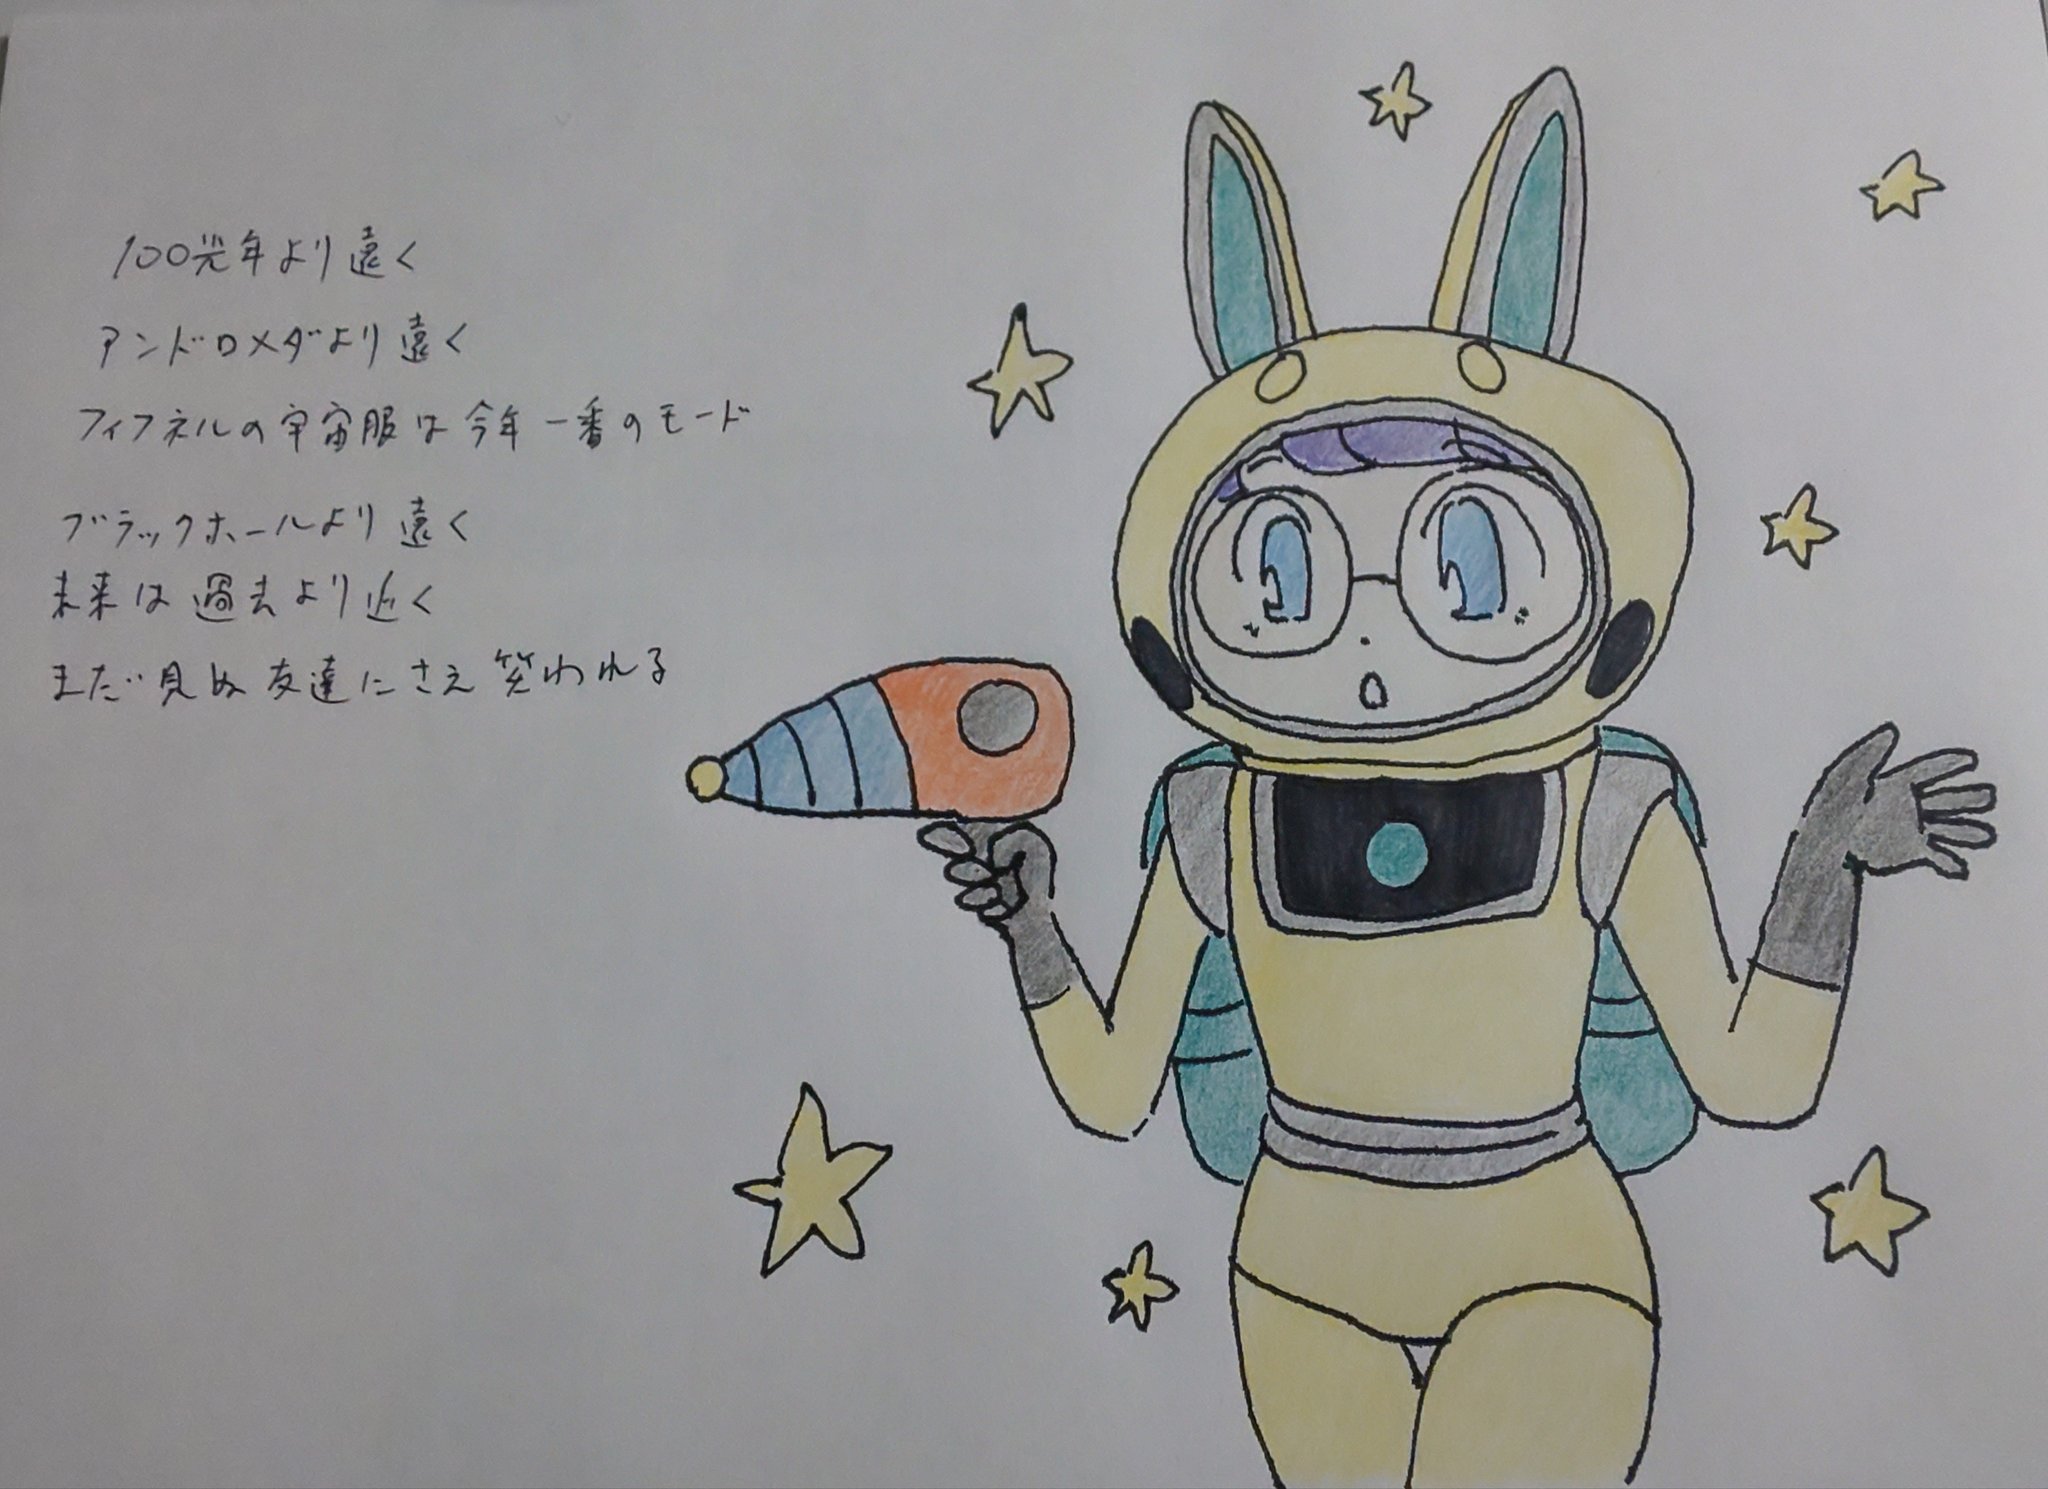 100光年より遠く
アンドロメダより遠く
フィフネルの宇宙服は今年一番のモード
ブラックホールより遠く
未来は過去より近く
まだ見ぬ友達にさえ笑われる